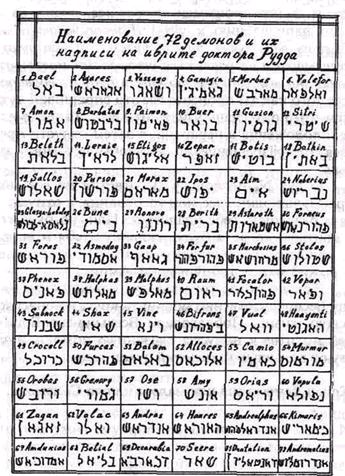 Наименование 72 демонов и их
надписи на иврите доктора Рудда
1. Bael 2. Agares 3. Vassago 4. Gamigin 5. Marbas 6. Valefor
באל אגהארש ושאגו גאמיגין מארבש ואלפאר
7. Amon 8. Barbatos 9. Paimon 10. Buer 11. Gusion 12. Sitri
אמון ברבטוש פאימון בואר גוסיון שיטרי
13. Beleth 14. Leraie 15. Eligos 16. Zepar 17. Botis 18. Bathin
בלאת לראיך אליגוש זאפר בוטיש באתין
19. Sallos 20. Purson 21. Morax 22. Ipos 23. Aim 24. Naberius
שאלוש פורשון מאראס יפוש אים נבריוש
26. Bune 27. Ronove 28. Berith 29. Astaroth 30. Forneus
בים רונוו ברית אשתארות
31. Foras 32. Asmoday 33. Gaap 34. Furfur 35. Marchosias 36. Stolas
פוראש אסמודי גאאף שטולוש
37. Phenex 38. Halphas 39. Malphas 40. Raum 41. Focalor 42. Vepar
פאניס מאלפש ראום ופאר
43. Sabnock 44. Shax 45. Vine 46. Bifrons 47. Vual 48. Haagenti
שבנוך שאז וינא וואל האגנטי
49. Crocell 50. Furcas 51. Balam 52. Alloces 53. Camio 54. Murmur
כרוכל באלאם אלוכאס כאמיו מורמוס
55. Orobas 56. Gremory 57. Ose 58. Amy 59. Orias 60. Vapula
ורובש גמורי ושו אונש וריאס נפולא
61. Zagan 62. Volac 63. Andras 64. Haures 65. Andrealphus 66. Kimaris
זאגאן ואלו אנדראש האוראש כימאריש
67. Amduxias 68. Belial 69. Decarabia 70. Seere 71. Dantalion 72. Andromalius
אמדוכאש בליאל דכארביא שאר